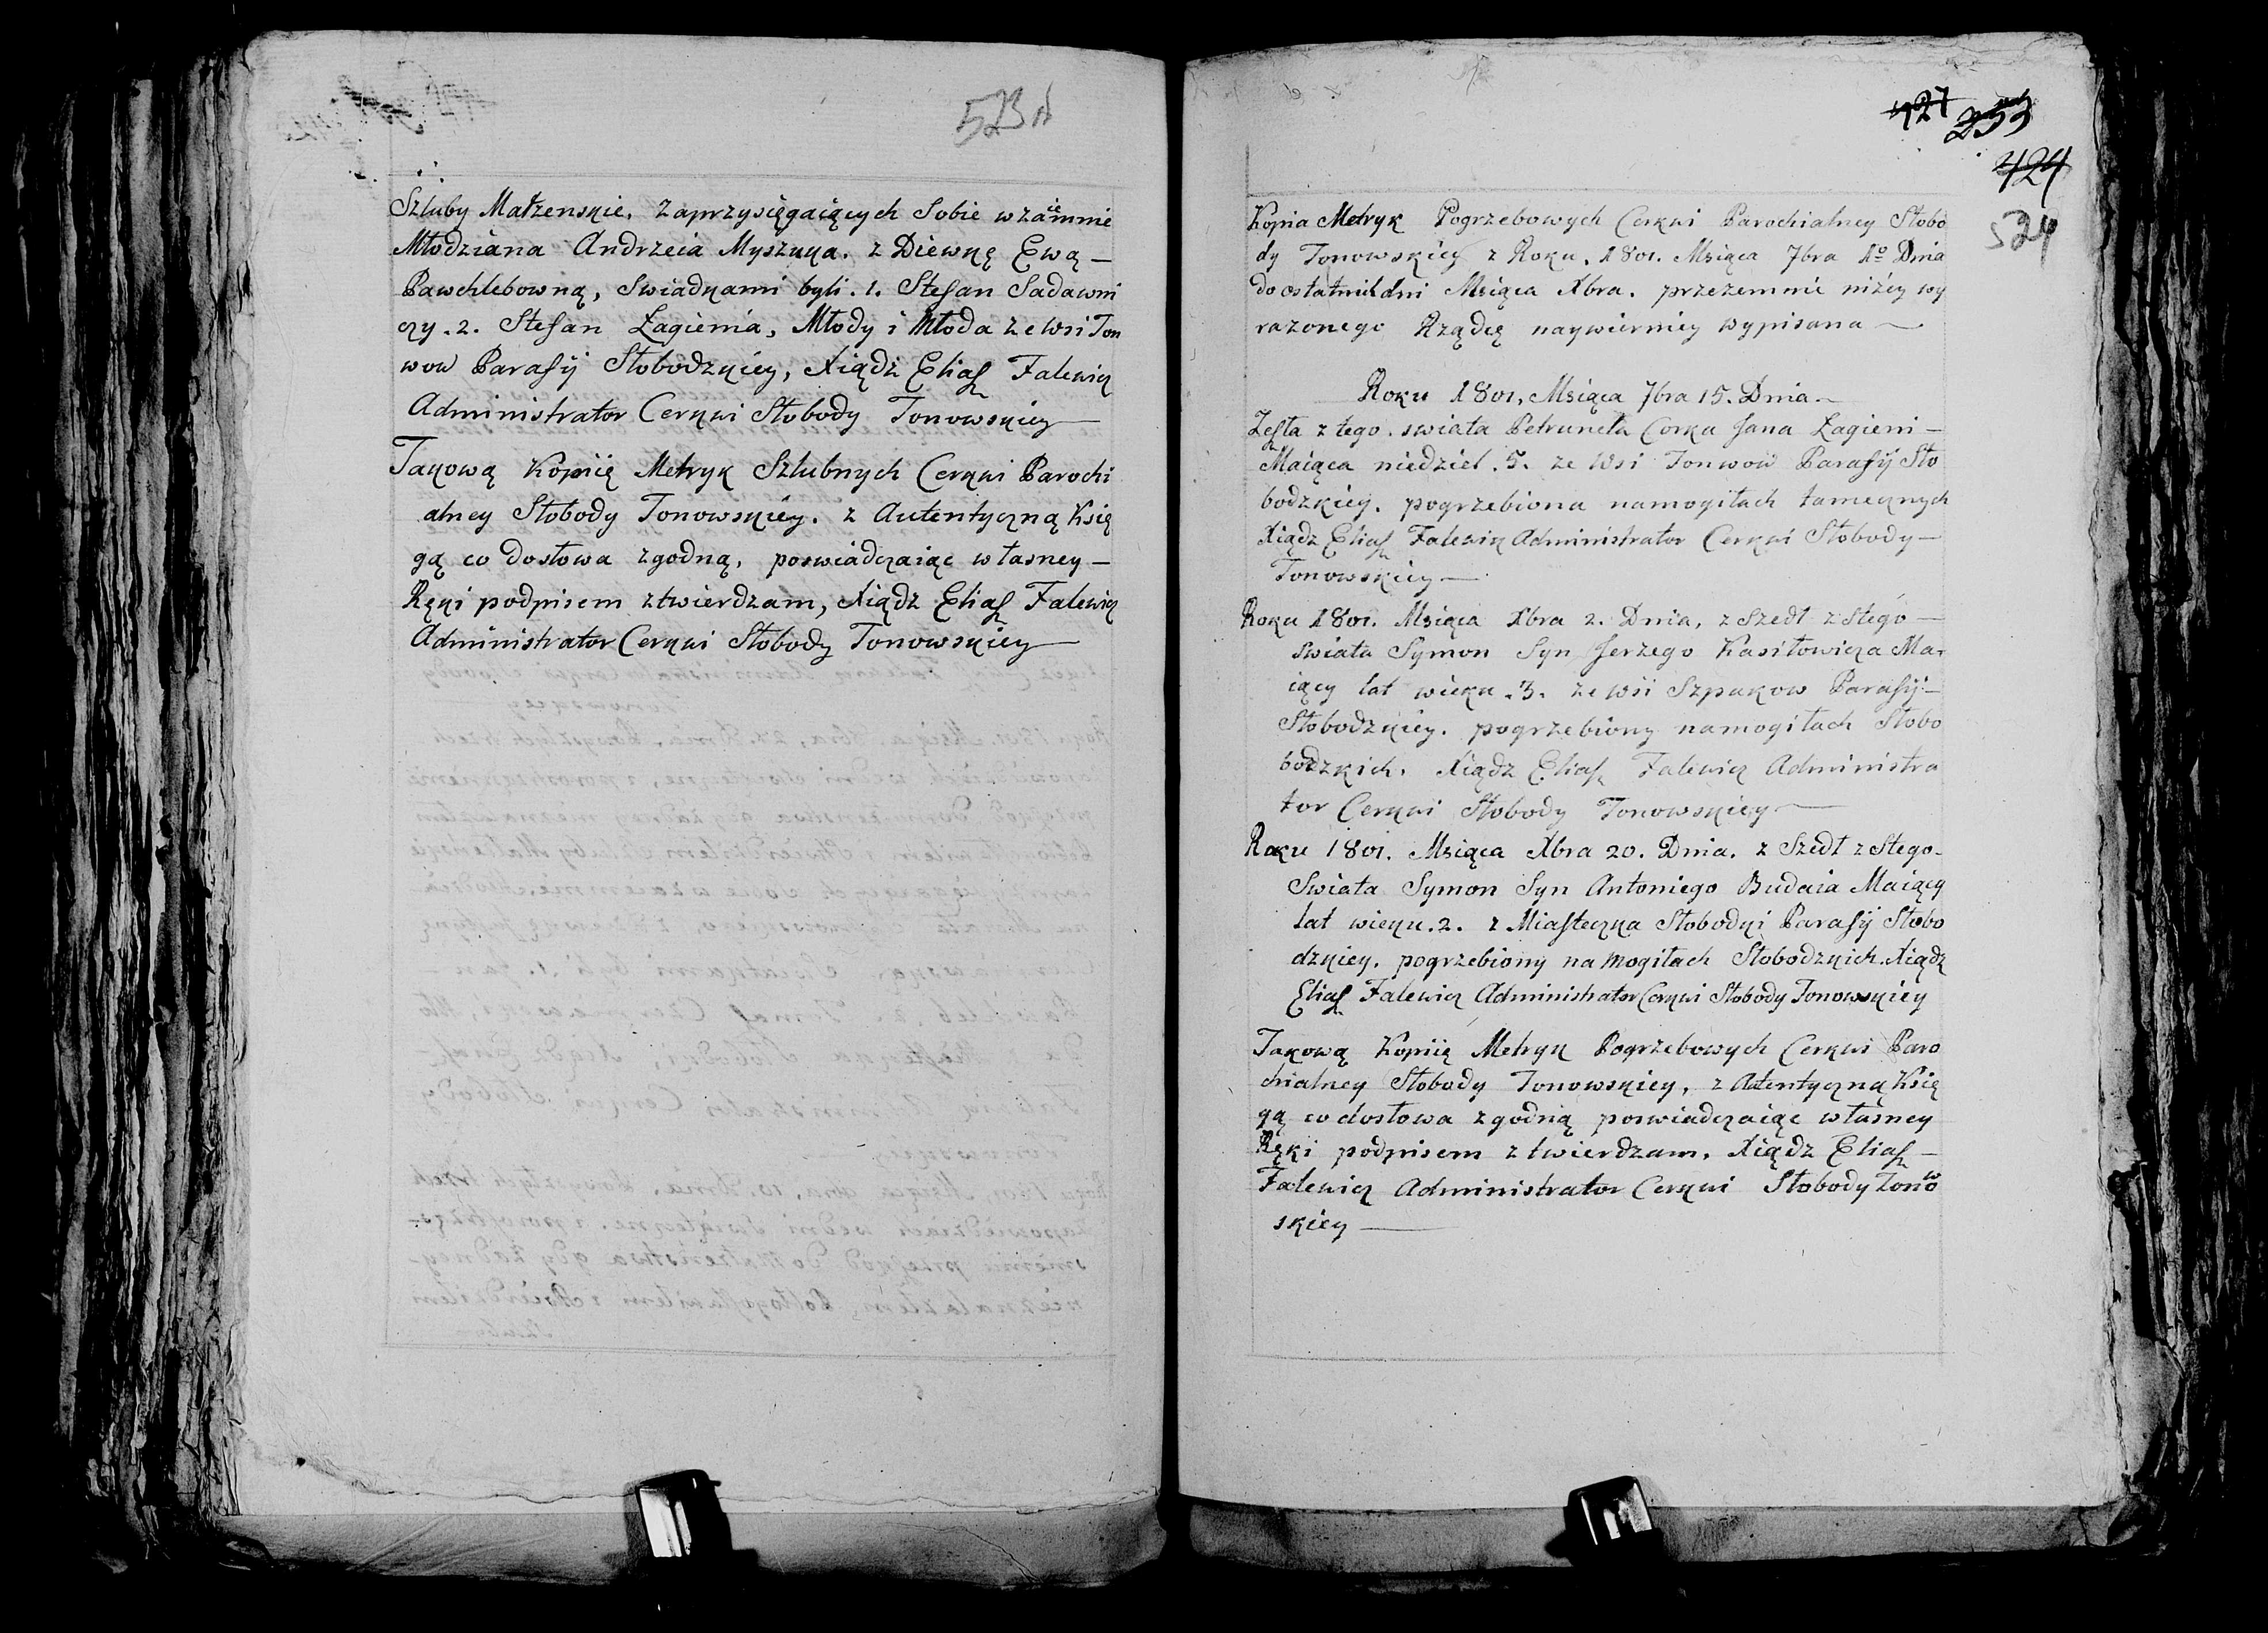 523 v
Szluby Małzenskie, Zaprzysięgaiących Sobie wzaiemnie
Młodziana Andrzeia Myszuka. z Diewkę Ewą —
Pawchlebowną, Swiadkami byli. 1. Stefan Sadawni
czy. 2. Stefan Łagienia, Młody i Młoda ze wsi Ton
wow Parafij Słobodzkiey, Xiądz Eliasz Falewicz
Administrator Cerkwi Słobody Tonowskiey —
Takową Kopiię Metryk Szlubnych Cerkwi Parochi
alney Słobody Tonowskiey. z Autentyczną Księ
gą co dosłowa zgodną, poswiadczaiąc własney —
Ręki podpisem ztwierdzam, Xiądz Eliasz Falewicz
Administrator Cerkwi Słobody Tonowskiey —
427
253
424
524
Kopia Metryk Pogrzebowych Cerkwi Parochialney Słobo
dy Tonowskiey z Roku. 1801. Msiąca 7bra 1o Dnia
do ostatnich dni Msiąca Xbra. przezemnie niżey wy
razonego Rządcę naywierniey wypisana —
Roku 1801, Msiąca 7bra 15. Dnia —
Zeszła z tego swiata Petrunela Corka Jana Łagieni —
Maiąca niedziel. 5. ze Wsi Tonwow Parafij Sło
bodzkiey. pogrzebiona namogiłach tamecznych
Xiądz Eliasz Falewicz Administrator Cerkwi Słobody —
Tonowskiey —
Roku 1801. Msiąca Xbra 2. Dnia, z Szedł z Stego —
Swiata Symon Syn Jerzego Kasiłowicza Ma-
iący lat wieku. 3. ze wsi Szpakow Parafij —
Słobodzkiey. pogrzebiony namogiłach Słobo
bodzkich. Xiądz Eliasz Falewicz Administra
tor Cerkwi Słobody Tonowskiey —
Roku 1801. Msiąca Xbra 20. Dnia. z Szedł z Stego-
Swiata Symon Syn Antoniego Budaia Maiący
lat wieku. 2. z Miasteczka Słobodki Parafij Słobo
dzkiey. pogrzebiony na mogiłach Słobodzkich. Xiądz
Eliasz Falewicz Administrator Cerkwi Słobody Tonowskiey
Takową Kopiię Metryk Pogrzebowych Cerkwi Paro
chialney Słobody Tonowskiey, z Atentyczną Księ
gą co dosłowa zgodną poswiadczaiąc własney
Ręki podpisem ztwierdzam, Xiądz Eliasz —
Falewicz Administrator Cerkwi Słobody Tonow
skiey —